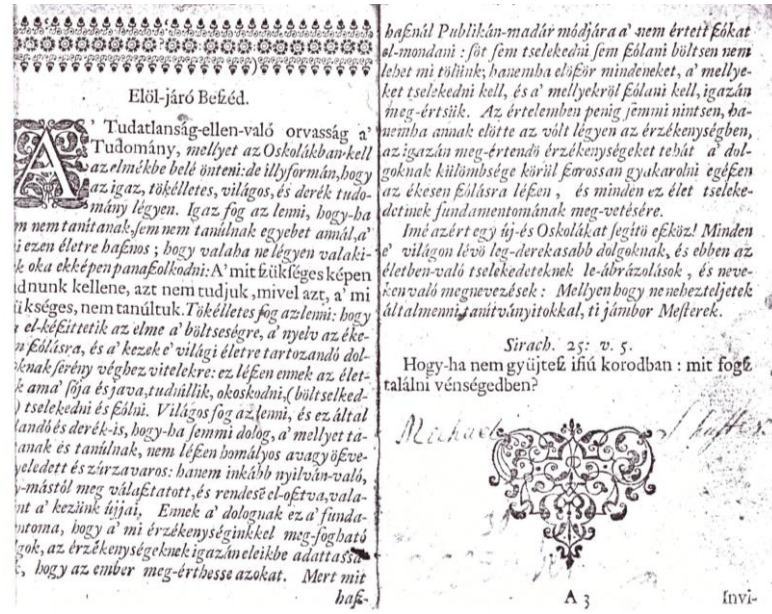 Elöl-járó Beßéd.
A' Tudatlanság-ellen-való orvasság a'
Tudomány, mellyet az Oskolákban kell
az elmékbe belé önteni: de illyformán, hogy
az igaz, tökélletes, világos, és derék tudo-
mány légyen. Igaz fog az lenni, hogy-ha
m nem tanítanak, ſem nem tanúlnak egyebet annál, a'
i ezen életre haßnos; hogy valaha ne légyen valaki-
k oka ekképen panaßolkodni: A' mit ßükſéges képen
dnunk kellene, azt nem tudjuk, mivel azt, a' mi
ükséges, nem tanúltuk. Tökélletes fog az lenni: hogy
el-kéßíttetik az elme a' böltseségre, a' nyelv az éke-
n ßólásra, és a' kezek e' világi életre tartozandó dol-
oknak ſerény véghez vitelekre: ez léßen ennek az élet-
k ama' ſója és java, tudnillik, okoskodni, (böltselked-
) tselekedni és ßólni. Világos fog az lenni, és ez által
landó és derék-is, hogy-ha ſemmi dolog, a' mellyet ta-
anak és tanúlnak, nem léßen homályos avagy ößve-
yeledett és zúrzavaros: hanem inkább nyilván-való,
y-mástól meg válaßtatott, és rendesē el-oßtva, vala-
nt a' kezünk újjai. Ennek a' dolognak ez a' funda-
ntoma, hogy a' mi érzékenységinkkel meg-fogható
lgok, az érzékenységeknek igazán eleikbe adattassa-
, hogy az ember meg-érthesse azokat. Mert mit
haß-
haßnál Publikán-madár módjára a' nem értett ßókat
el-mondani: ſöt ſem tselekedni ſem ßólani böltsen nem
lehet mi tölünk, hanemha elößör mindeneket, a' mellye-
ket tselekedni kell, és a' mellyekröl ßólani kell, igazán
meg-értsük. Az értelemben penig ſemmi nintsen, ha-
nemha annak elötte az vólt légyen az érzékenységben,
az igazán meg-értendö érzékenységeket tehát a' dol-
goknak külömbsége körül ßorossan gyakarolni egéßen
az ékesen ßólásra léßen, és minden ez élet tseleke-
detinek fundamentomának meg-vetésére.
Imé azért egy új-és Oskolákat ſegítö eßköz! Minden
e' világon lévö leg-derekasabb dolgoknak, és ebben az
életben-való tselekedeteknek le-ábrázolások, és neve-
ken való megnevezések: Mellyen hogy ne nehezteljetek
általmenni tanítványitokkal, ti jámbor Meſterek.
Sirach. 25: v. 5.
Hogy-ha nem gyüjteß ifiú korodban: mit fogß
találni vénségedben?
Michael
A 3
Invi-